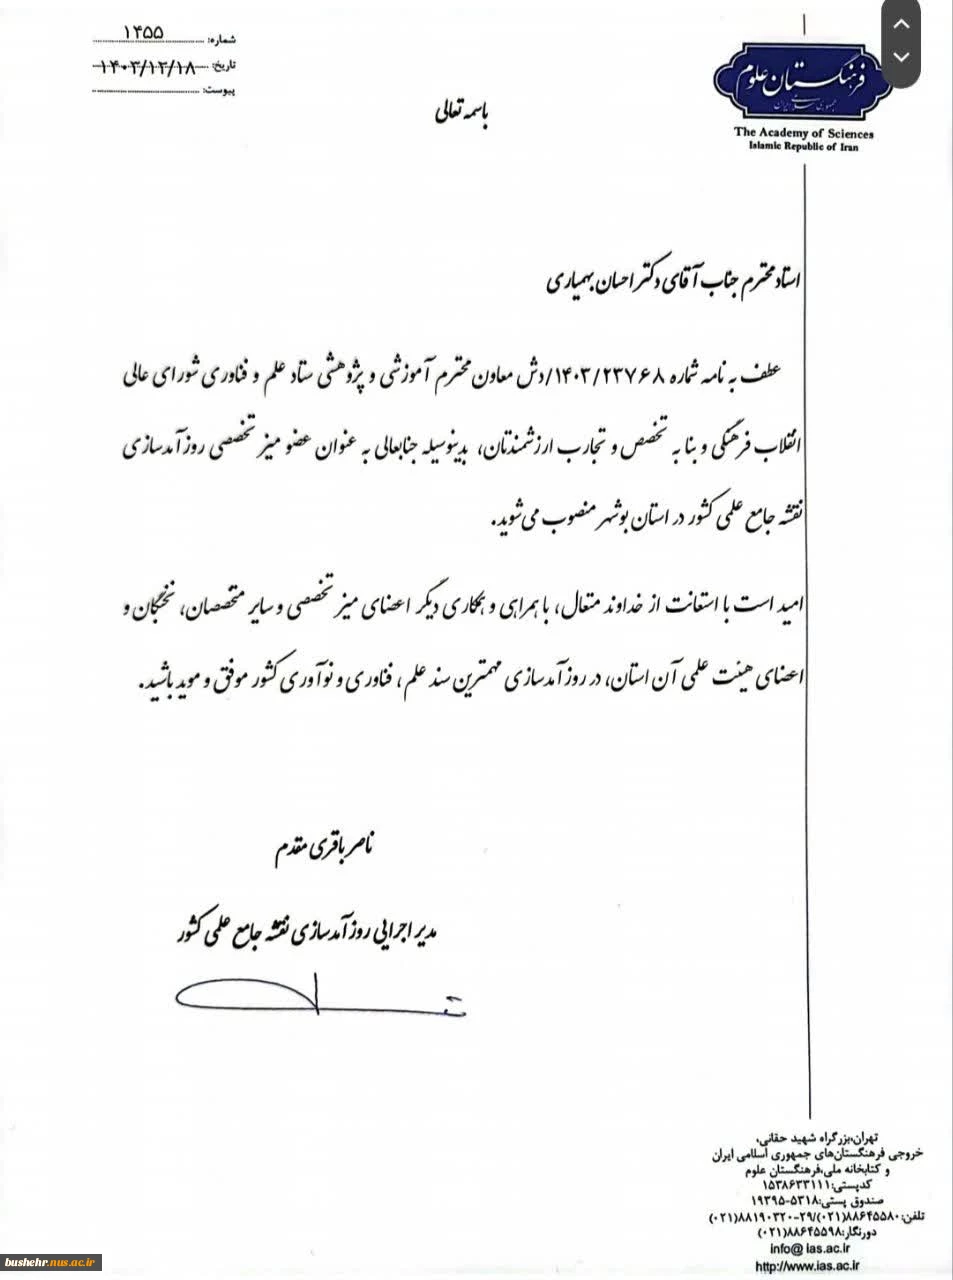 شماره: ۱۴۵۵
تاریخ: ۱۴۰۳/۱۲/۱۸
پیوست:
فرهنگستان علوم
جمهوری اسلامی ایران
The Academy of Sciences
Islamic Republic of Iran
باسمه تعالی
استاد محترم جناب آقای دکتر احسان بهمیاری
عطف به نامه شماره ۱۴۰۳/۲۳۷۶۸/دش معاون محترم آموزشی و پژوهشی ستاد علم و فناوری شورای عالی
انقلاب فرهنگی و بنا به تخصص و تجارب ارزشمندتان، بدینوسیله جنابعالی به عنوان عضو میز تخصصی روزآمدسازی
نقشه جامع علمی کشور در استان بوشهر منصوب می‌شوید.
امید است با استعانت از خداوند متعال، با همراهی و همکاری دیگر اعضای میز تخصصی و سایر متخصصان، نخبگان و
اعضای هیئت علمی آن استان، در روزآمدسازی مهمترین سند علم، فناوری و نوآوری کشور موفق و موید باشید.
ناصر باقری مقدم
مدیر اجرایی روزآمدسازی نقشه جامع علمی کشور
تهران،بزرگراه شهید حقانی،
خروجی فرهنگستان‌های جمهوری اسلامی ایران
و کتابخانه ملی،فرهنگستان علوم
کدپستی:۱۵۳۸۶۳۳۱۱۱
صندوق پستی:۵۳۱۸-۱۹۳۹۵
تلفن:۸۸۶۴۵۵۸۰(۰۲۱)/۲۹-۸۸۱۹۰۳۲۰(۰۲۱)
دورنگار:۸۸۶۴۵۵۹۸(۰۲۱)
info@ias.ac.ir
http://www.ias.ac.ir
bushehr.nus.ac.ir